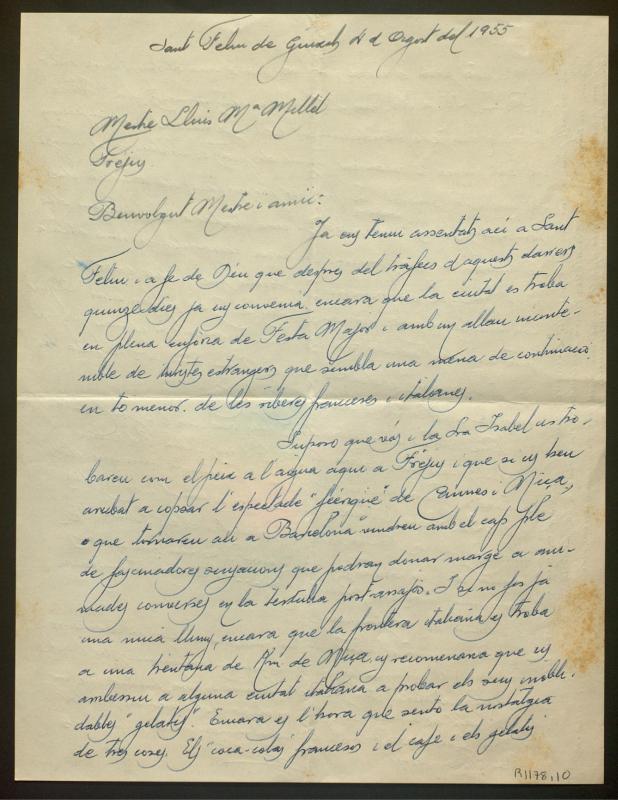 Sant Feliu de Guíxols 4 d'Agost del 1955
Mestre Lluis Mª Millet
Fréjus
Benvolgut Mestre i amic:
Ja ens teniu assentats ací a Sant
Feliu i a fe de Déu que despres del tràfec d'aquests darrers
quinze dies ja ens convenia. encara que la ciutat es troba
en plena eufòria de Festa Major i amb un allau inconte-
nible de turistes estrangers que sembla una mena de continuació
en to menor. de les riberes franceses i italianes.
Suposo que vós i la Sra Isabel us tro-
bareu com el peix a l'aigua aqui a Fréjus i que si us heu
arribat a copsar l'espectacle "féerique" de Cannes i Niça,
que tornareu aci a Barcelona vindreu amb el cap ple
de fascinadores sensacions que podran donar marge a ani-
mades converses en la tertulia post-assaijos. I si no fos ja
una mica lluny, encara que la frontera italiana es troba
a una trentena de Km de Niça, us recomenaria que us
arribessiu a alguna ciutat italiana a probar els seus inobli-
dables "gelatis". Encara es l'hora que sento la nostalgia
de tres coses. Els "coca-colas" francesos i el cafe i els gelatis
R1178,10